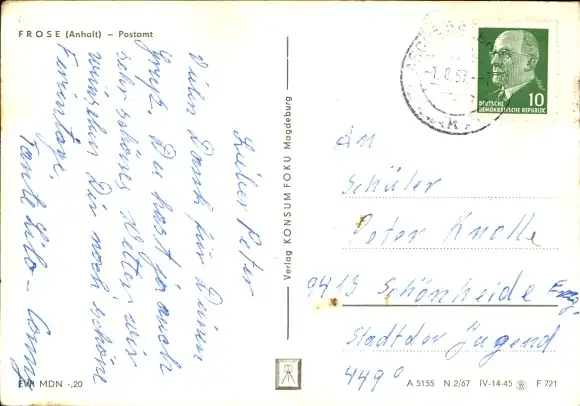 FROSE (Anhalt) – Postamt
Lieber Peter
Vielen Dank für Deinen
Gruß. Du hast ja auch
sehr schönes Wetter, wir
wünschen Dir noch schöne
Ferientage.
Tante Lelo –
Verlag KONSUM FOKU Magdeburg
DEUTSCHE
DEMOKRATISCHE REPUBLIK
10
An
Schüler
Peter Knolle
9413 Schönheide Erzg.
Stadt der Jugend
449⁰
EVP MDN -,20
A 5155 N 2/67 IV-14-45 F 721